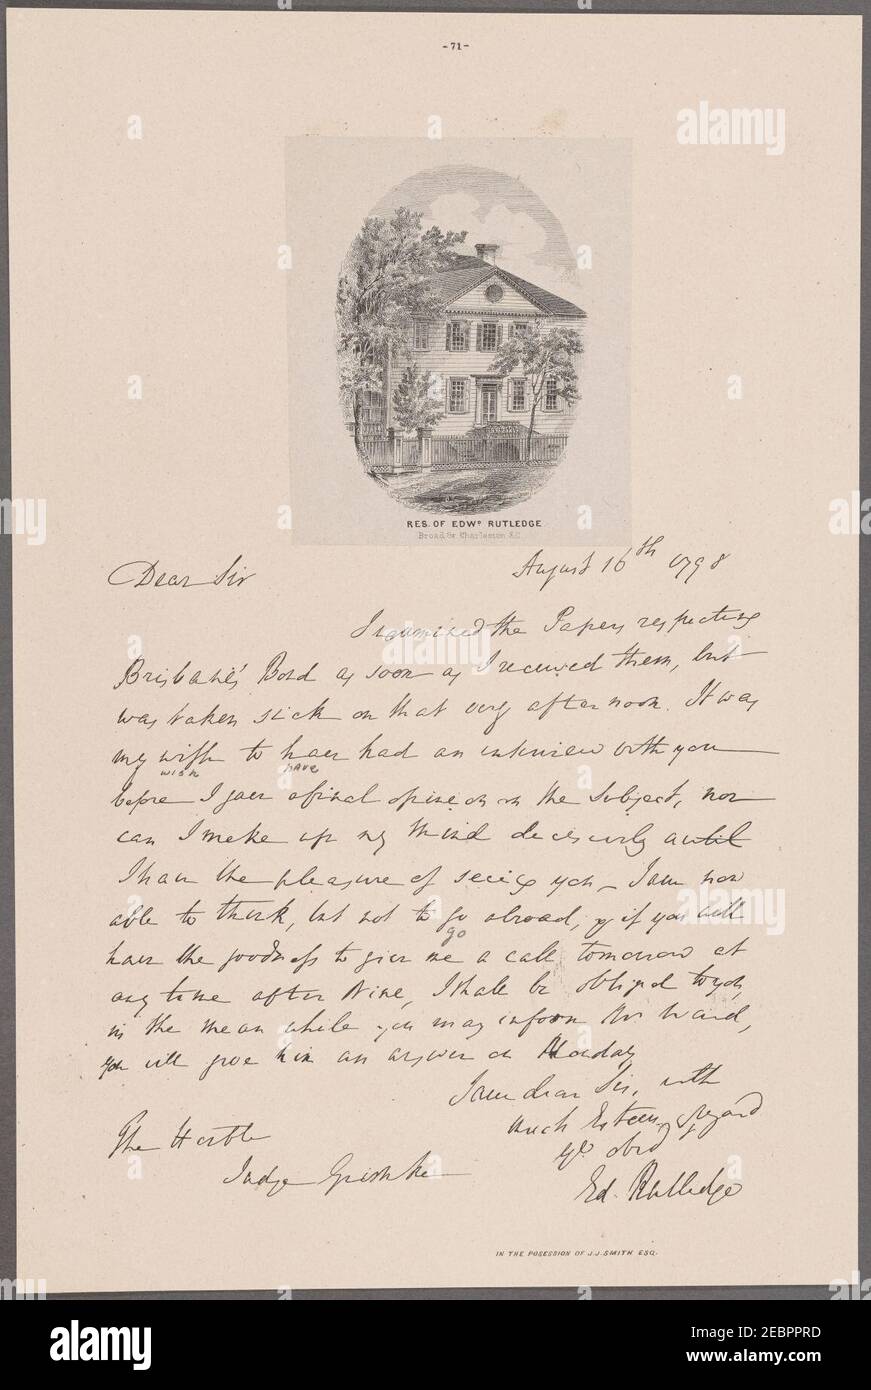 -71-
RES. OF EDWD RUTLEDGE
Broad St Charleston S.C.
August 16th 1798
Dear Sir
I examined the Papers respecting
Brisbane's Bond as soon as I received them, but
was taken sick on that very afternoon. It was
my wish to have had an interview with you
wish have
before I gave a final opinion on the Subject, nor
can I make up my Mind decisively until
I have the pleasure of seeing you – I am now
able to think, but not to go abroad, & if you will
go
have the goodness to give me a call tomorrow at
any time after Nine, I shall be obliged to you,
in the mean while you may inform Mr Ward,
you will give him an answer on Monday
I am dear Sir, with
much Esteem & regard
yr obed
The Honble
Judge Grimke
Ed. Rutledge
IN THE POSESSION OF J.J. SMITH ESQ.
alamy
Image ID: 2EBPPRD
www.alamy.com